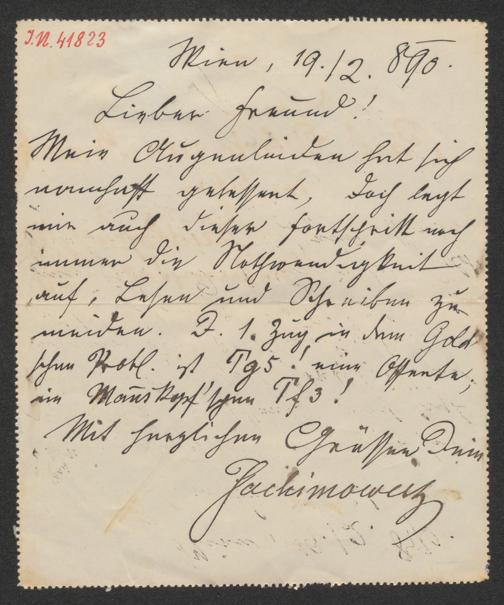 I.N. 41823
Wien, 19./2. 890.
Lieber Freund!
Mein Augenleiden hat sich
namhaft gebessert, doch legt
mir auch dieser Fortschritt noch
immer die Nothwendigkeit
auf, Lesen und Schreiben zu
meiden. D. 1. Zug in dem Gold
schen Probl. ist Tg5! eine Offerte;
im Mauskopf'schen Tf3!
Mit herzlichen Grüssen Dein
Jachimowitz